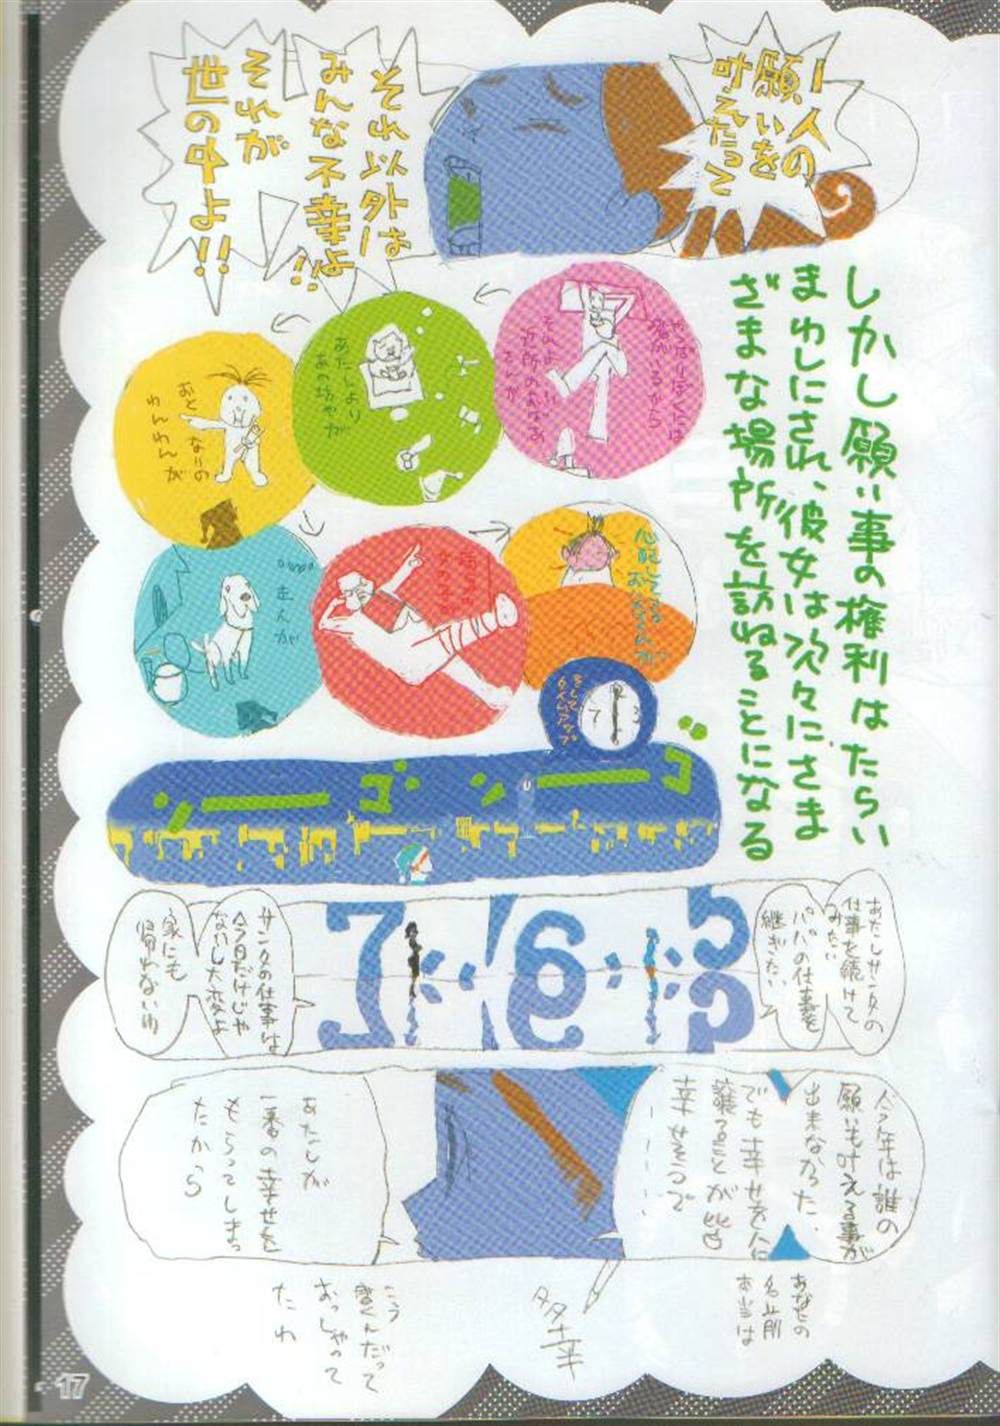 一人の
願いを
叶えたって
それ以外は
みんな不幸よ!!
それが
世の中よ!!
しかし願い事の権利はたらい
まわしにされ、彼女は次々にさま
ざまな場所を訪ねることになる
やっぱりぼくには
それよりいい
近所のおばあ
さんが
あたしより
あの坊やが
おとなりの
わんわんが
まんが
心配してる
おじいさんが
そして
タイムアップ
ゴーン
ゴーン
あたしサンタの
仕事を続けて
みたい
パパの仕事を
継ぎたい
5
6
7
サンタの仕事は
今日だけじゃ
ないし大変よ
家にも
帰れないわ
今年は誰の
願いも叶える事が
出来なかった、
でも幸せを人に
譲ることが皆
幸せそうで
あたしが
一番の幸せを
もらってしまっ
たから
あなたの
名前
本当は
多幸
こう
書くんだって
おっしゃって
たわ
17